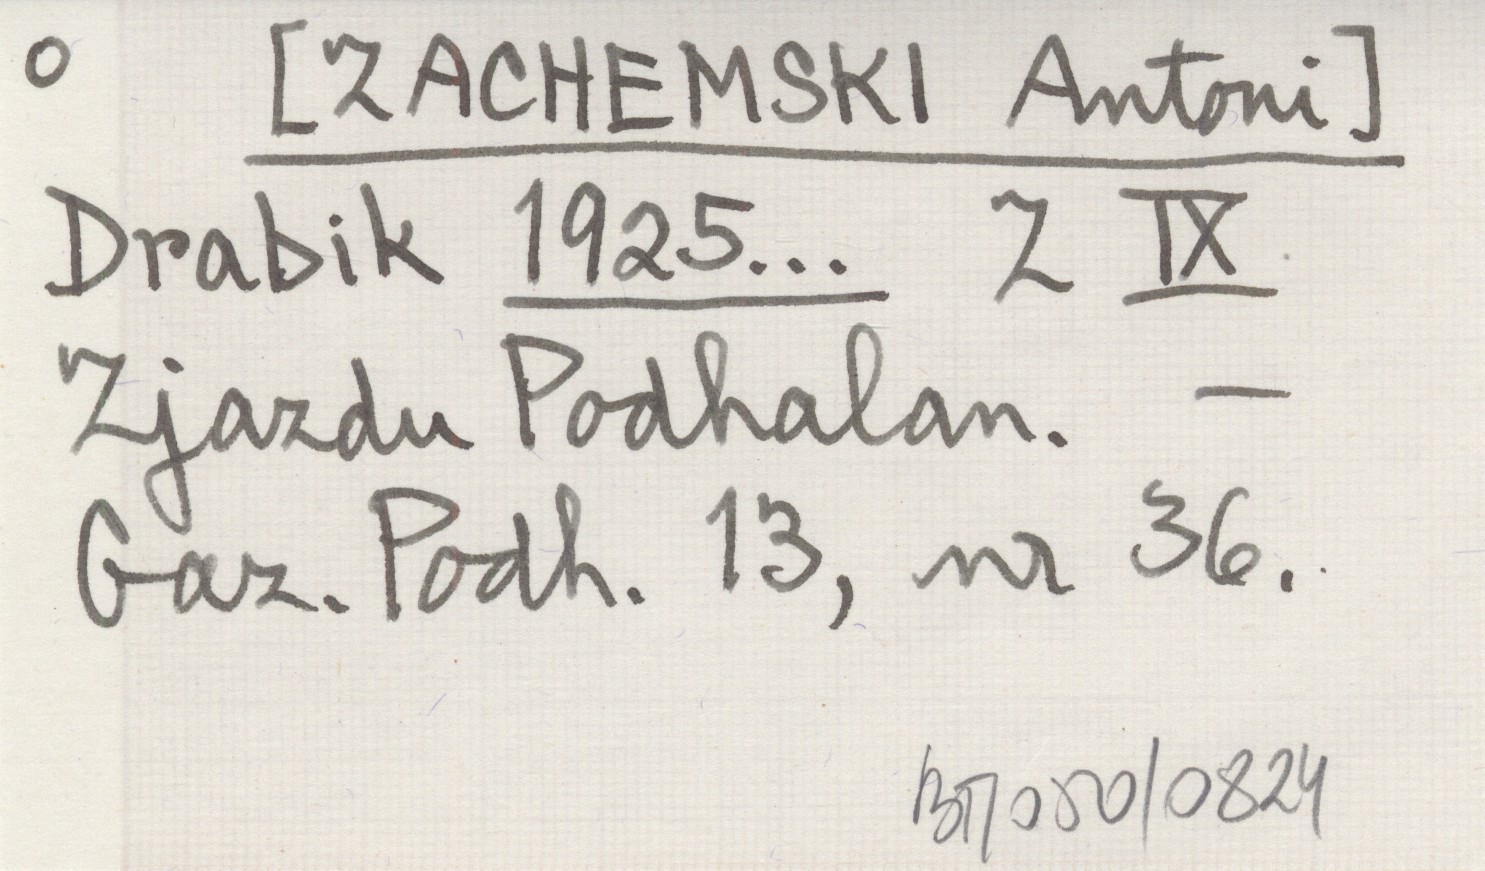 o [ZACHEMSKI Antoni]
Drabik 1925... Z IX
Zjazdu Podhalan. —
Gaz. Podh. 13, nr 36.